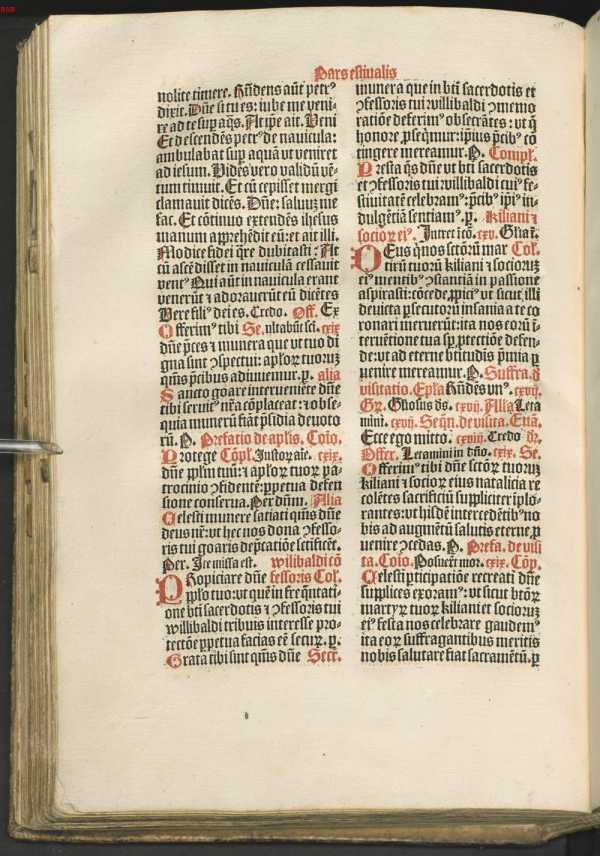 Pars estiualis
nolite timere. Rn̄dens aūt petrꝰ
dixit. Dn̄e si tu es: iube me veni-
re ad te suꝑ aq̄s. At ip̄e ait. Veni
Et descendēs petrꝰ de nauicula:
ambulabat suꝑ aquā vt veniret
ad iesum. Vidēs vero validū vē-
tum timuit. Et cū cepisset mergi
clamauit dicēs. Dn̄e: saluū me
fac. Et cōtinuo extendēs ihesus
manum apprehēdit eū: et ait illi.
Modice fidei q̄re dubitasti: At
cū ascēdisset in nauiculā cessauit
ventꝰ Qui aūt in nauicula erant
venerūt ⁊ adorauerūt eū dicētes
Vere filiꝰ dei es. Credo. Off. Ex
Offerimꝰ tibi Se. ultabūt sc̄i. cxix
dn̄e p̄ces ⁊ munera que vt tuo di
gna sint ꝯspectui: aplōꝝ tuoꝝ
qm̄s p̄cibus adiuuemur. ꝑ. alia
Sancto goare interueniēte dn̄e
tibi seruitꝰ nr̄a cōplaceat: ⁊ obse-
quia munerū fiāt p̄sidia deuoto
rū. P. Prefatio de aplis. Coīo.
Protege Cōpl. Justoꝝ aīe. cxix.
dn̄e ppl̄m tuū: ⁊ aplōꝝ tuoꝝ pa-
trocinio ꝯfidentē: ꝑpetua defen
sione conserua. Per dn̄m. Alia
Celesti munere satiati qm̄s dn̄e
deus nr̄: vt hec nos dona ꝯfesso-
ris tui goaris dep̄catiōe sctificēt.
Per. Ite missa est. wilibaldi cō
Propiciare dn̄e fessoris Col.
pplo tuo: vt quē in freq̄ntati-
one bt̄i sacerdotis ⁊ ꝯfessoris tui
willibaldi tribuis interesse pro-
tectōe ꝑpetua facias eē secuꝝ. ꝑ.
Grata tibi sint qm̄s dn̄e Secr.
munera que in bt̄i sacerdotis et
ꝯfessoris tui willibaldi ꝯmemo
ratiōe deferimꝰ obsecrātes: vt q̄
honore ꝓseq̄mur: ipsius p̄cibꝰ cō
tingere mereamur. P. Compl.
Presta q̄s dn̄e vt bt̄i sacerdotis
et ꝯfessoris tui willibaldi cuiꝰ fe-
stiuitatē celebramꝰ: p̄cibꝰ ip̄iꝰ in-
dulgētiā sentiamꝰ. ꝑ. Kiliani ⁊
socioꝝ eiꝰ. Intret icō. cxv. Gl̄ia n̄.
Deus q̄ nos sctōrū mar Col.
tirū tuorū kiliani ⁊ socioruꝫ
eiꝰ mentibꝰ ꝯstantiā in passione
aspirasti: cōcede, ꝓpiciꝰ vt sicut illi
deuicta ꝑsecutorū insania a te co
ronari meruerūt: ita nos eorū ī-
teruētione tua sꝑ ꝓtectiōe defen-
de: vt ad eterne bt̄itudīs p̄mia ꝑ
uenire mereamur. P. Suffra. d̄
visitatio. Epl̄a Rn̄dēs vnꝰ. cxvij.
Gr̄. Gl̄iosus ds̄. cxvij. All̄a Leta
mini. cxvij. Seq̄n. de visita. Euā.
Ecce ego mitto. cxviij. Credo dr̄.
Offer. Letamini in dn̄o. cxix. Se.
Offerimꝰ tibi dn̄e sctōꝝ tuoruꝫ
kiliani ⁊ socioꝝ eius natalicia re
colētes sacrificiū suppliciter īplo-
rantes: vt hisdē intercedētibꝰ no
bis ad augmētū salutis eterne, ꝓ
uenire ꝯcedas. P. Prefa. de visi
ta. Coīo. Posuerūt mor. cxix. Cōp.
Celesti ꝑticipatiōe recreati dn̄e
supplices exoramꝰ: vt sicut btōꝝ
martyꝝ tuoꝝ kiliani et socioruꝫ
eiꝰ festa nos celebrare gaudemꝰ
ita eoꝝ suffragantibus meritis
nobis salutare fiat sacramētū. ꝑ